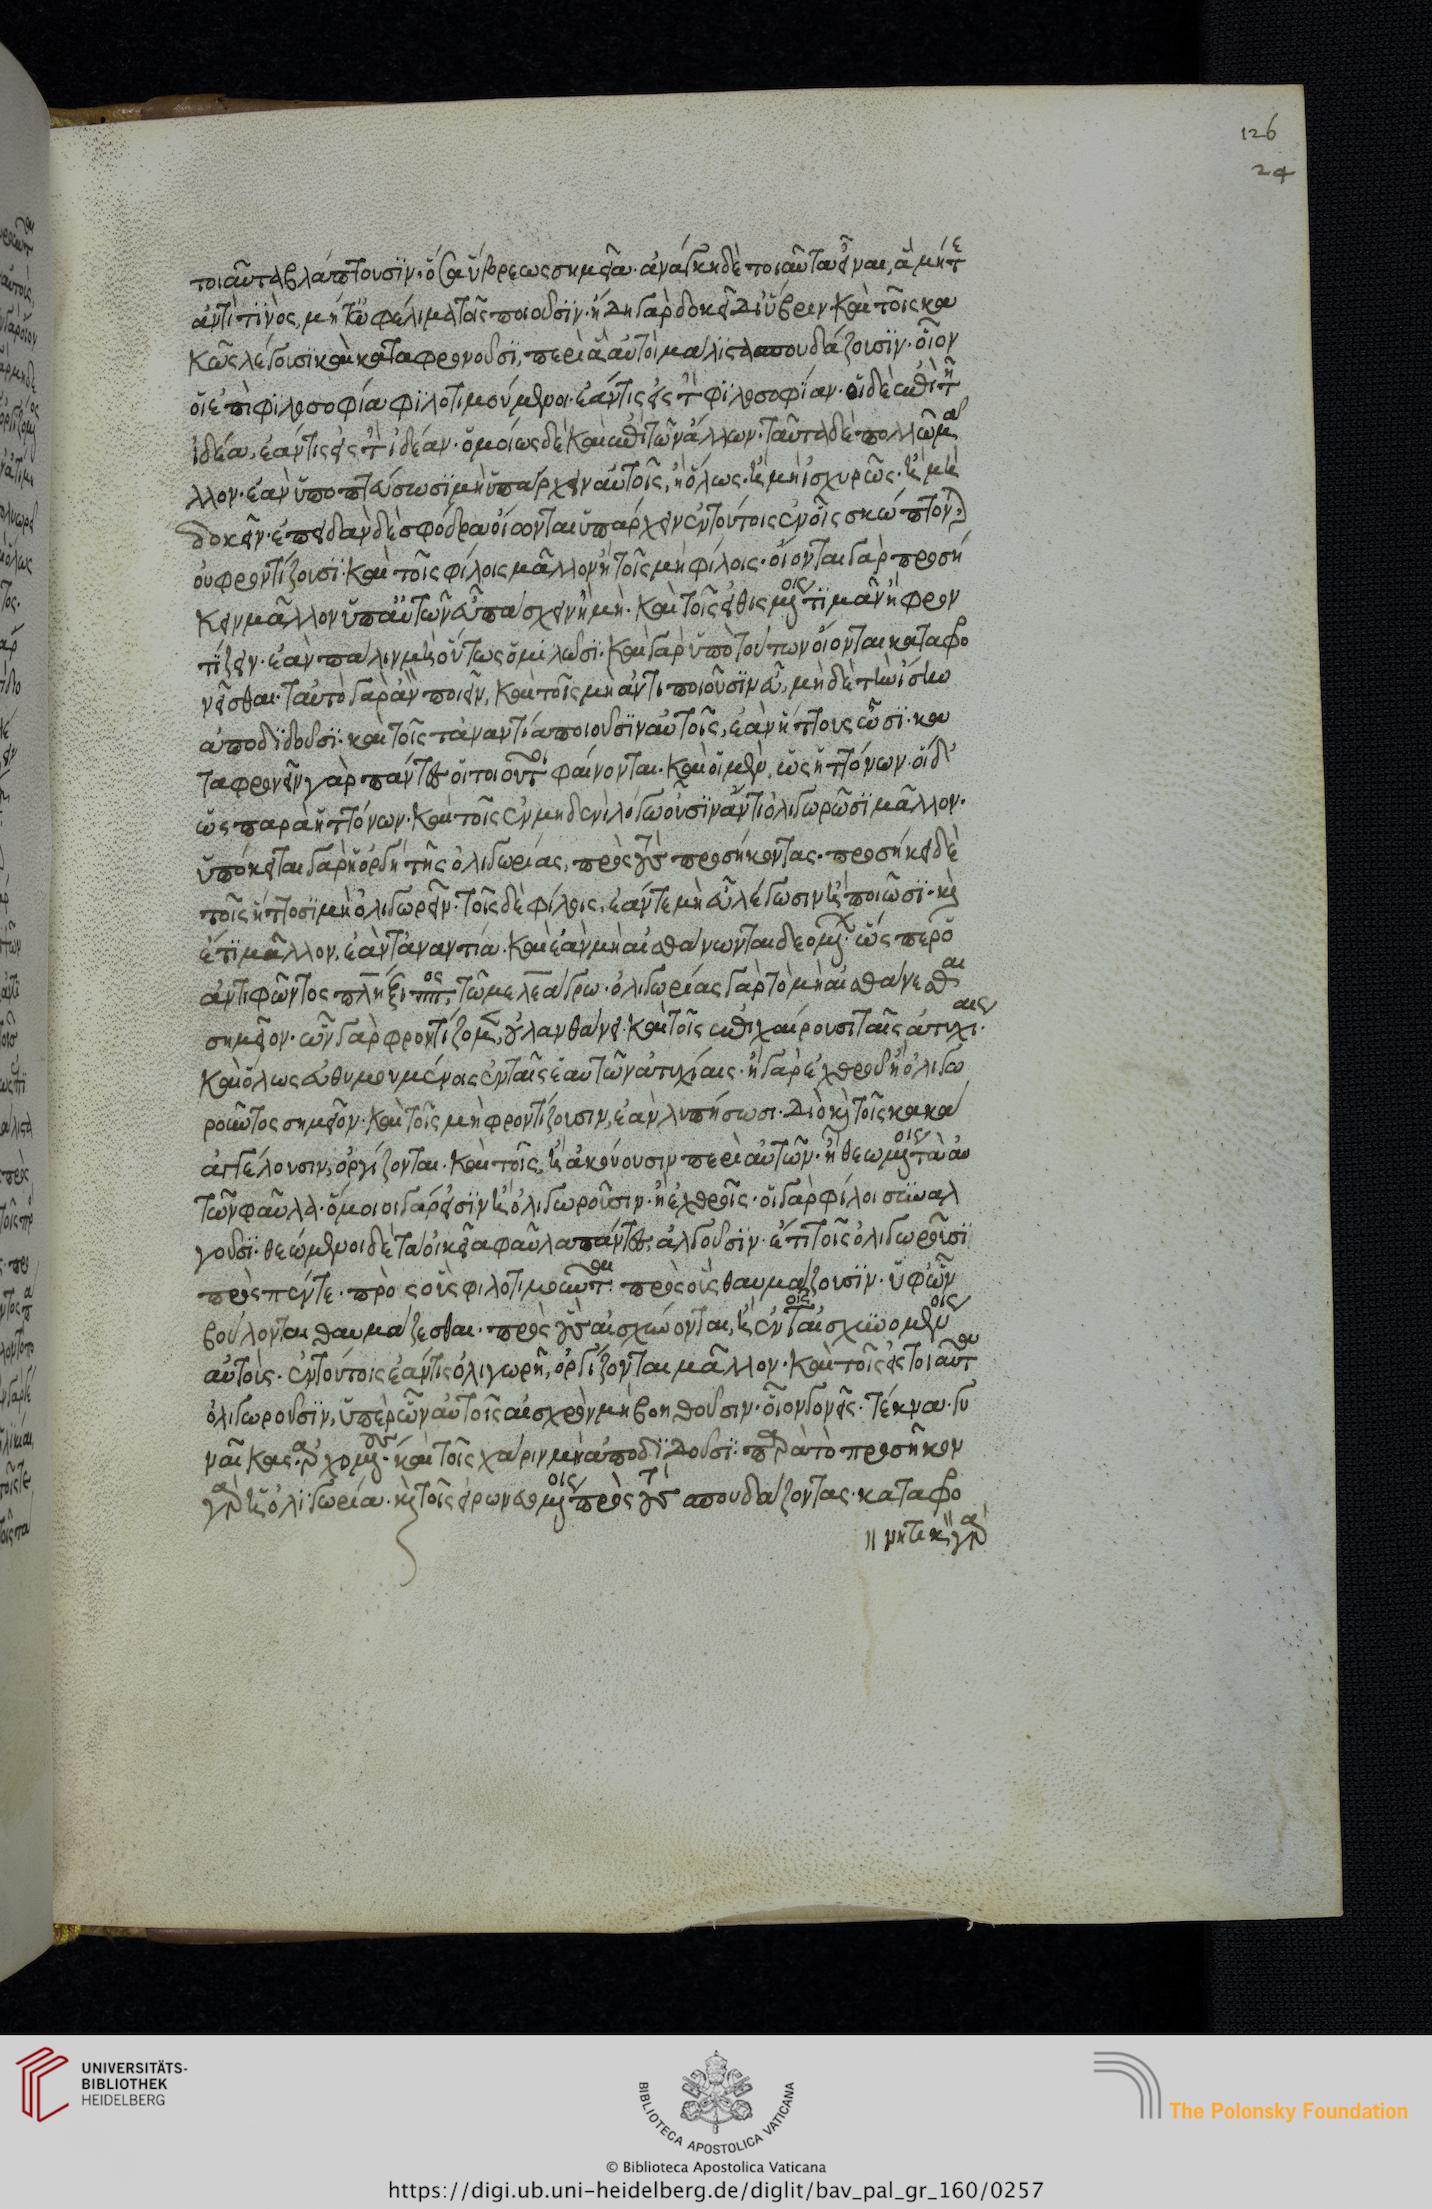 τοιαῦτα βλάπτουσϊν· ὅσα ὕβρεως σημεῖα· ἀνάγκη δὲ τοιαῦτα εἶναι, ἃ μήτε
ἀντὶ τϊνὸς, μήτ' ὠφέλιμα τοῖς ποιοῦσϊν· ἤδη γὰρ δοκεῖ δι' ὕβριν· καὶ τοῖς κα
κῶς λέγουσϊ καὶ καταφρονοῦσϊ, περὶ ἃ αὐτοὶ μάλϊστα σπουδάζουσϊν· οἷον
οἱ ἐπὶ φϊλοσοφία φιλοτιμούμενοι· ἐάν τις εἰς τὴν φϊλοσοφϊαν· οἱ δὲ ἐπὶ τῆ
ἰδέα, ἐάν τις εἰς τὴν ἰδέαν· ὁμοίως δὲ καὶ ἐπὶ τῶν ἄλλων· ταῦτα δὲ πολλῶ μα
λλον· ἐὰν ὑποπτεύσωσϊ μὴ ὑπάρχειν αὐτοῖς, ἢ ὅλως· ἢ μὴ ἰσχυρῶς· ἢ μὴ
δοκεῖν· ἐπειδὰν δὲ σφόδρα οἴωνται ὑπάρχειν ἐν τούτοις ἐν οἷς σκώπτονται
οὐ φροντίζουσϊ· καὶ τοῖς φίλοις μᾶλλον ἢ τοῖς μὴ φίλοις· οἴονται γὰρ προσή
κειν μᾶλλον ὑπ' αὐτῶν εὖ πάσχειν ἢ μὴ· καὶ τοῖς εἰθισμένοις τϊμᾶν ἢ φρον
τίζειν· ἐὰν πάλιν μὴ οὕτως ὁμιλῶσϊ· καὶ γὰρ ὑπὸ τούτων οἴονται καταφρο
νεῖσθαι· ταὐτὸ γὰρ ἂν ποιεῖν, καὶ τοῖς μὴ ἀντιποιοῦσϊν εὖ, μηδὲ τὴν ἴσην
ἀποδϊδοῦσϊ· καὶ τοῖς τἀναντία ποιοῦσϊν αὐτοῖς, ἐὰν ἥττους ὦσϊ· κα
ταφρονεῖν γὰρ πάντες οἱ τοιοῦτοι φαίνονται· καὶ οἱ μὲν, ὡς ἡττόνων· οἱ δ'
ὡς παρὰ ἡττόνων· καὶ τοῖς ἐν μηδενὶ λόγω οὖσϊν ἄν τι ὀλιγωρῶσϊ μᾶλλον·
ὑπόκειται γὰρ ἡ ὀργὴ τῆς ὀλιγωρίας, πρὸς τοὺς προσήκοντας· προσήκει δὲ
τοῖς ἥττοσϊ μὴ ὀλιγωρεῖν· τοῖς δὲ φίλοις, ἐάν τε μὴ εὖ λέγωσιν ἢ ποιῶσϊ· καὶ
ἔτϊ μᾶλλον, ἐὰν τἀναντία· καὶ ἐὰν μὴ αἰσθάνωνται δεομένων· ὥσπερ ὁ
ἀντιφῶντος πλήξιππος, τῶ μελεάγρω· ὀλιγωρίας γὰρ τὸ μὴ αἰσθάνεσθαι
σημεῖον· ὧν γὰρ φροντίζομεν, οὐ λανθάνει· καὶ τοῖς ἐπιχαίρουσι ταῖς ἀτυχίαις·
καὶ ὅλως εὐθυμουμένοις ἐν ταῖς ἑαυτῶν ἀτυχίαις· ἢ γὰρ ἐχθροῦ ἢ ὀλιγω
ροῦντος σημεῖον· καὶ τοῖς μὴ φροντίζουσιν, ἐὰν λυπήσωσι· διὸ καὶ τοῖς κακὰ
ἀγγέλουσιν, ὀργίζονται· καὶ τοῖς, ἢ ἀκούουσιν περὶ αὐτῶν· ἢ θεωμένοις τὰ αὐ
τῶν φαῦλα· ὅμοιοι γάρ εἰσϊν ἢ ὀλιγωροῦσιν· ἢ ἐχθροῖς· οἱ γὰρ φίλοι συναλ
γοῦσϊ· θεώμενοι δὲ τὰ οἰκεῖα φαῦλα πάντες, ἀλγοῦσϊν· ἔτι τοῖς ὀλιγωροῦσϊ
πρὸς πέντε· πρὸς οὓς φιλοτιμοῦνται· πρὸς οὓς θαυμάζουσϊν· ὑφ' ὧν
βούλονται θαυμάζεσθαι· πρὸς οὓς αἰσχύνονται, ἢ ἐν τοῖς αἰσχυνομένοις
αὐτοὺς· ἐν τούτοις ἐάν τις ὀλιγωρῆ, ὀργίζονται μᾶλλον· καὶ τοῖς εἰς τοιαῦτα
ὀλιγωροῦσϊν, ὑπὲρ ὧν αὐτοῖς αἰσχρὸν μὴ βοηθοῦσιν· οἷον γονεῖς· τέκνα· γυ
ναῖκας· ἀρχομένους· καὶ τοῖς χάριν μὴ ἀποδϊδοῦσϊ· παρὰ τὸ προσῆκον
γὰρ ἡ ὀλιγωρία· καὶ τοῖς εἰρωνευομένοις πρὸς τοὺς σπουδάζοντας· καταφρο
νητικὴ γὰρ
126
24
UNIVERSITÄTS-
BIBLIOTHEK
HEIDELBERG
BIBLIOTECA APOSTOLICA VATICANA
© Biblioteca Apostolica Vaticana
The Polonsky Foundation
https://digi.ub.uni-heidelberg.de/diglit/bav_pal_gr_160/0257